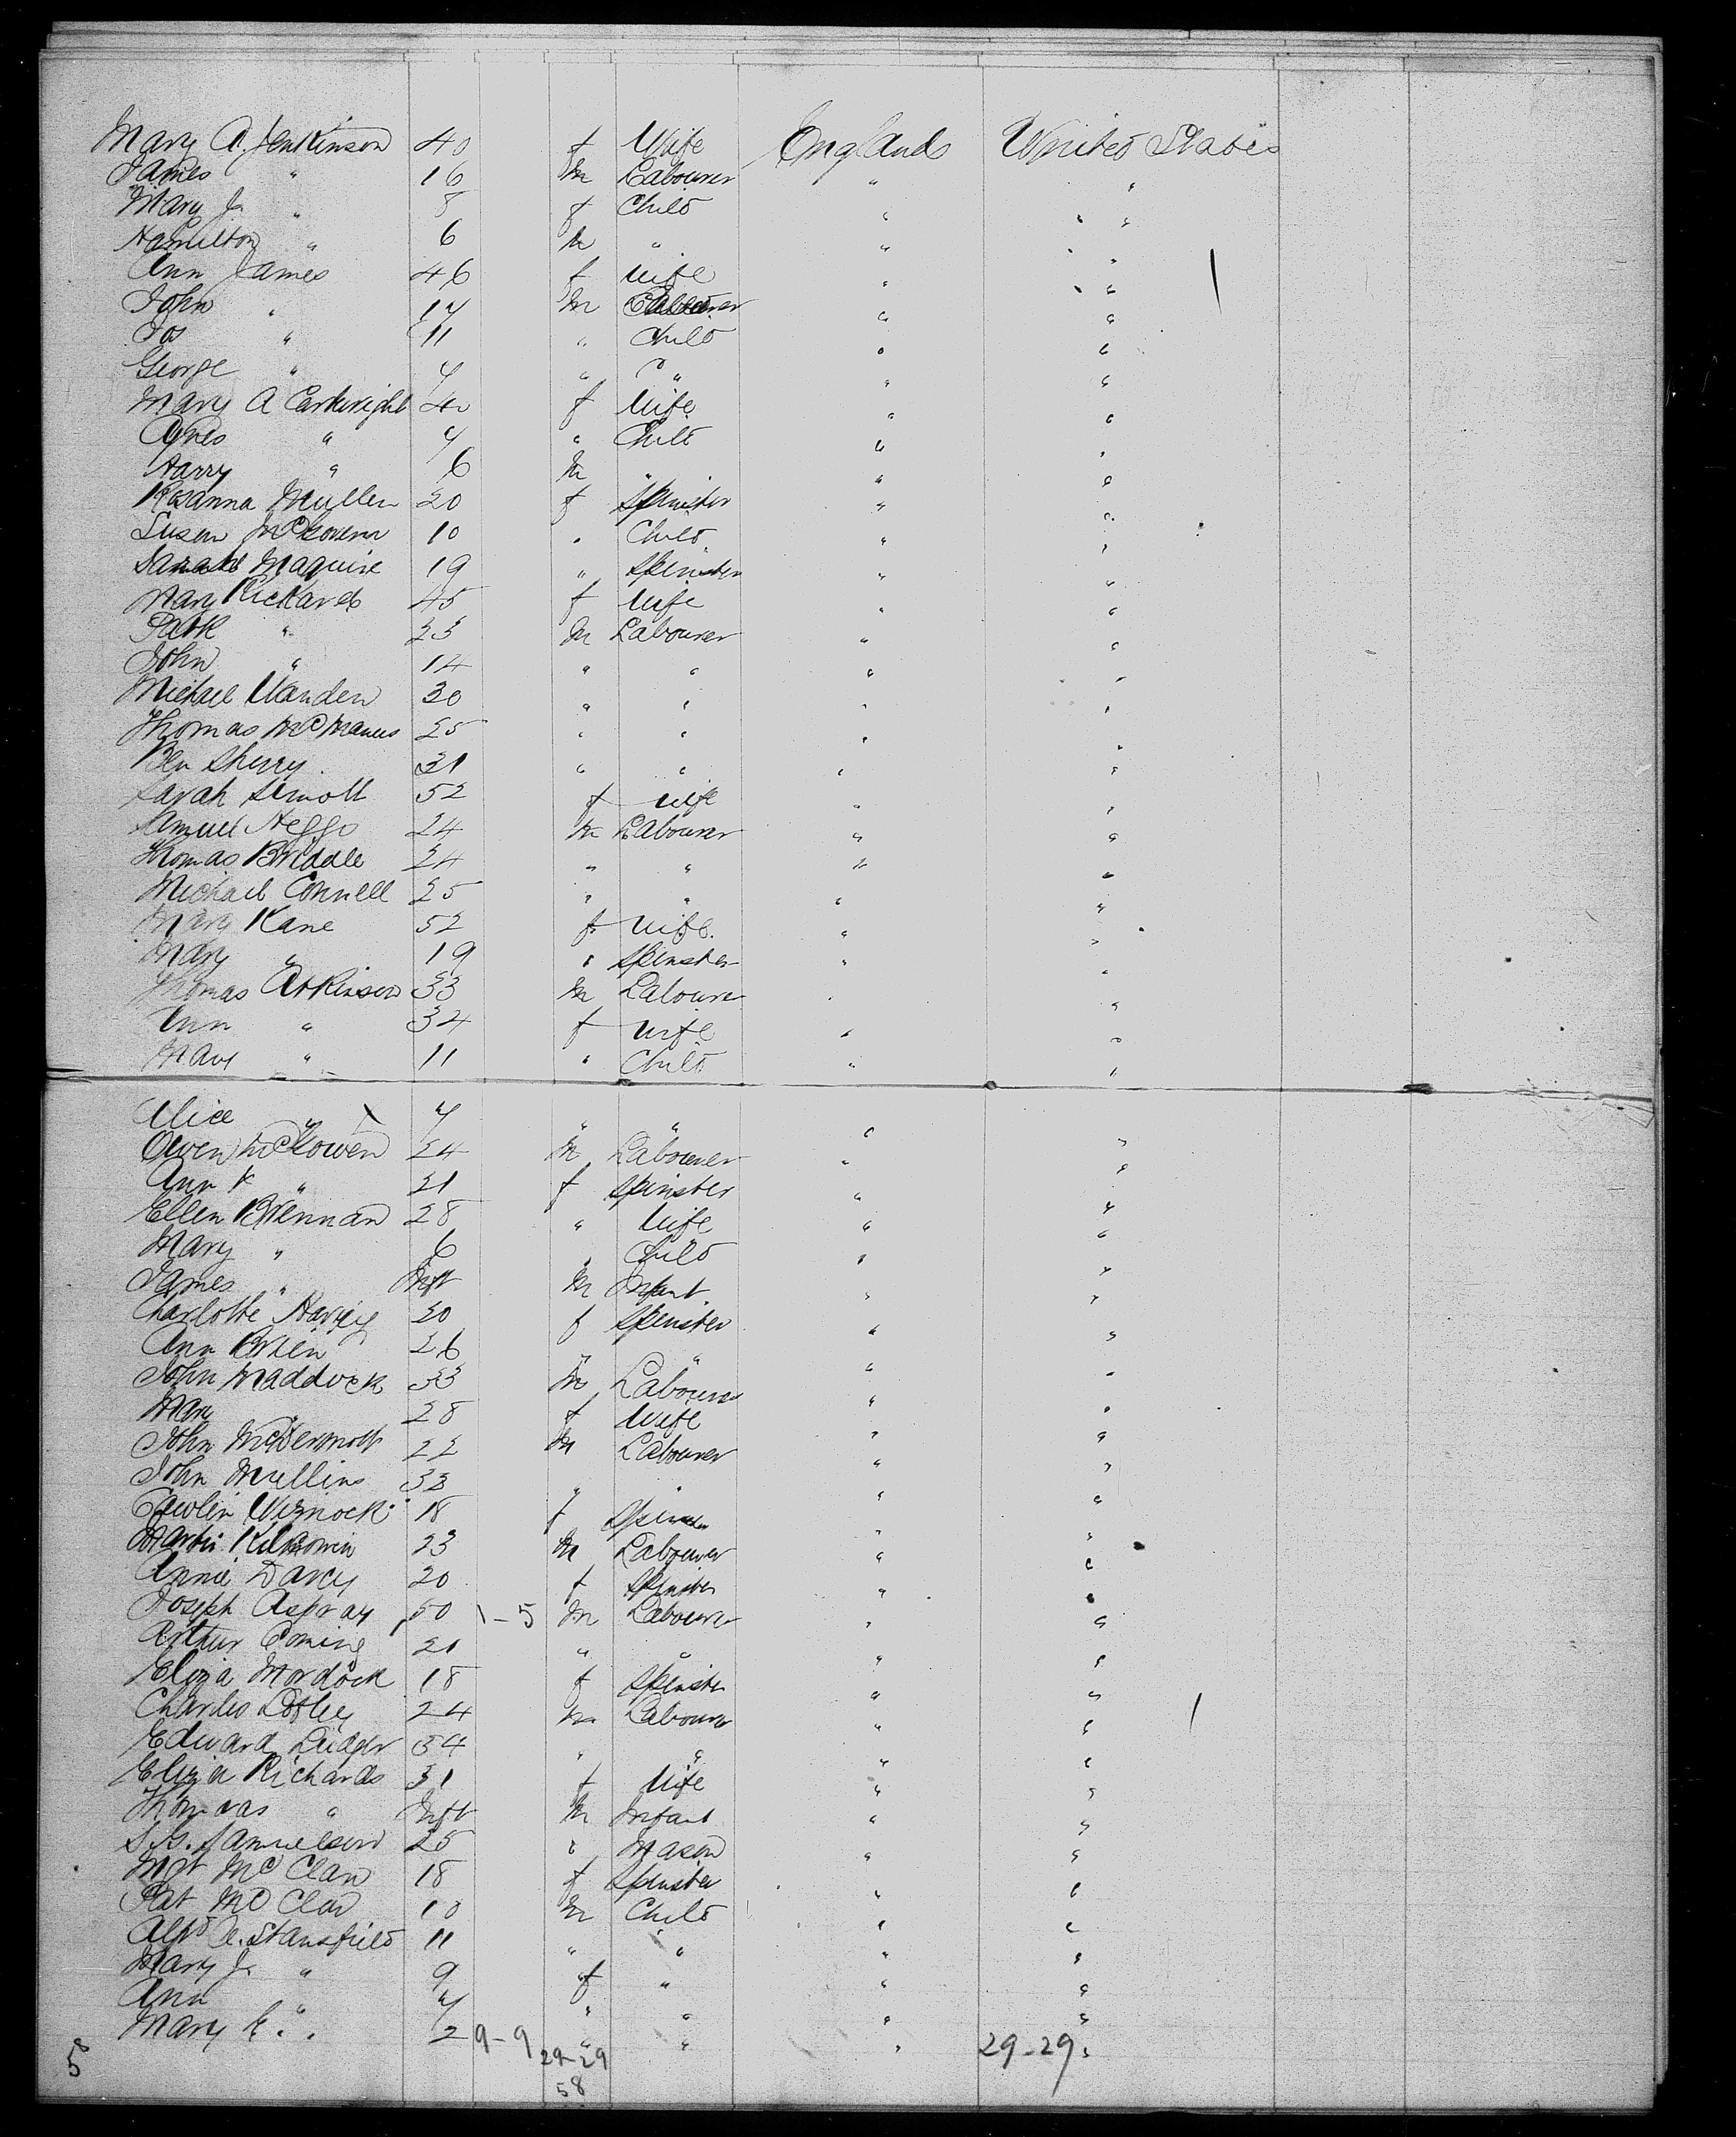 Mary A. Jenkinson 40 f Wife England United States
James " 16 m Labourer " "
Mary J. " 8 f Child " "
Hamilton " 6 m " " "
Ann James 46 f Wife " "
John " 17 m Labourer " "
Jos " 11 " Child " "
George " 7 " " " "
Mary A Cartwright 40 f Wife " "
Agnes " 7 " Child " "
Harry " 6 m " " "
Rosanna Mullen 20 f Spinster " "
Susan McKowen 10 " Child " "
Sarah Maguire 19 " Spinster " "
Mary Rickards 45 f Wife " "
Patk " 23 m Labourer " "
John " 14 " " " "
Michael 30 " " " "
Thomas McManus 25 " " " "
Ben Sherry 31 " " " "
Sarah 52 f Wife " "
Samuel Heggs 24 m Labourer " "
Thomas Briddle 24 " " " "
Michael Connell 25 " " " "
Mary Kane 52 f Wife " "
Mary " 19 " Spinster " "
Thomas Atkinson 33 m Labourer " "
Ann " 34 f Wife " "
Mary " 11 " Child " "
Alice " 7 " " " "
Owen McKowen 24 m Labourer " "
Ann K " 21 f Spinster " "
Ellen Brennan 28 " Wife " "
Mary " 6 " Child " "
James " Inft m Infant " "
Charlotte 20 f Spinster " "
Ann Brien 26 " " " "
John Maddock 33 m Labourer " "
Mary " 28 f Wife " "
John McDermott 22 m Labourer " "
John Mullins 33 " " " "
18 f Spinster " "
Martin 23 m Labourer " "
Annie Darcy 20 f Spinster " "
Joseph Aspray 50 1-5 m Labourer " "
Arthur 21 " " " "
Eliza Mordock 18 f Spinster " "
Charles 24 m Labourer " "
Edward 54 " " " "
Eliza Richards 31 f Wife " "
Thomas " Inft m Infant " "
Samuelson 25 " Mason " "
Mgt McClaw 18 f Spinster " "
Pat McClaw 10 m Child " "
Alfd A. Stansfield 11 " " " "
Mary J. " 9 f " " "
Ann " 7 " " " "
Mary E. " 2 " " " "
9-9 29-29 29-29
58
58